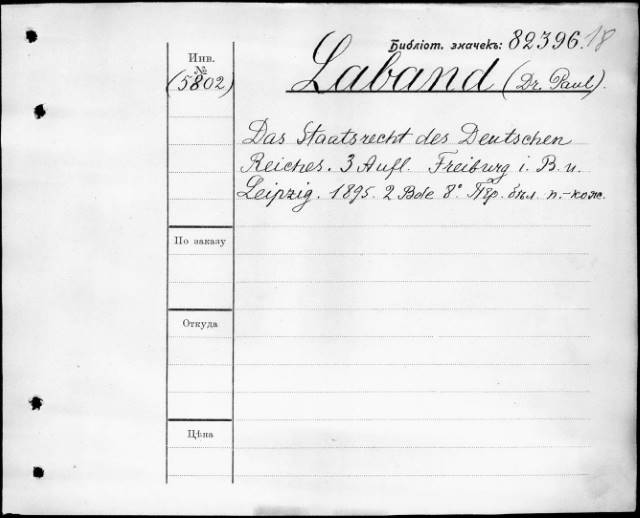 Библіот. значекъ: 82396.18
Инв.
№
(5802)
Laband (Dr. Paul).
Das Staatsrecht des Deutschen
Reiches. 3 Aufl. Freiburg i. B. u.
Leipzig. 1895. 2 Bde 8° Пер. бѣл. п.-кож.
По заказу
Откуда
Цѣна